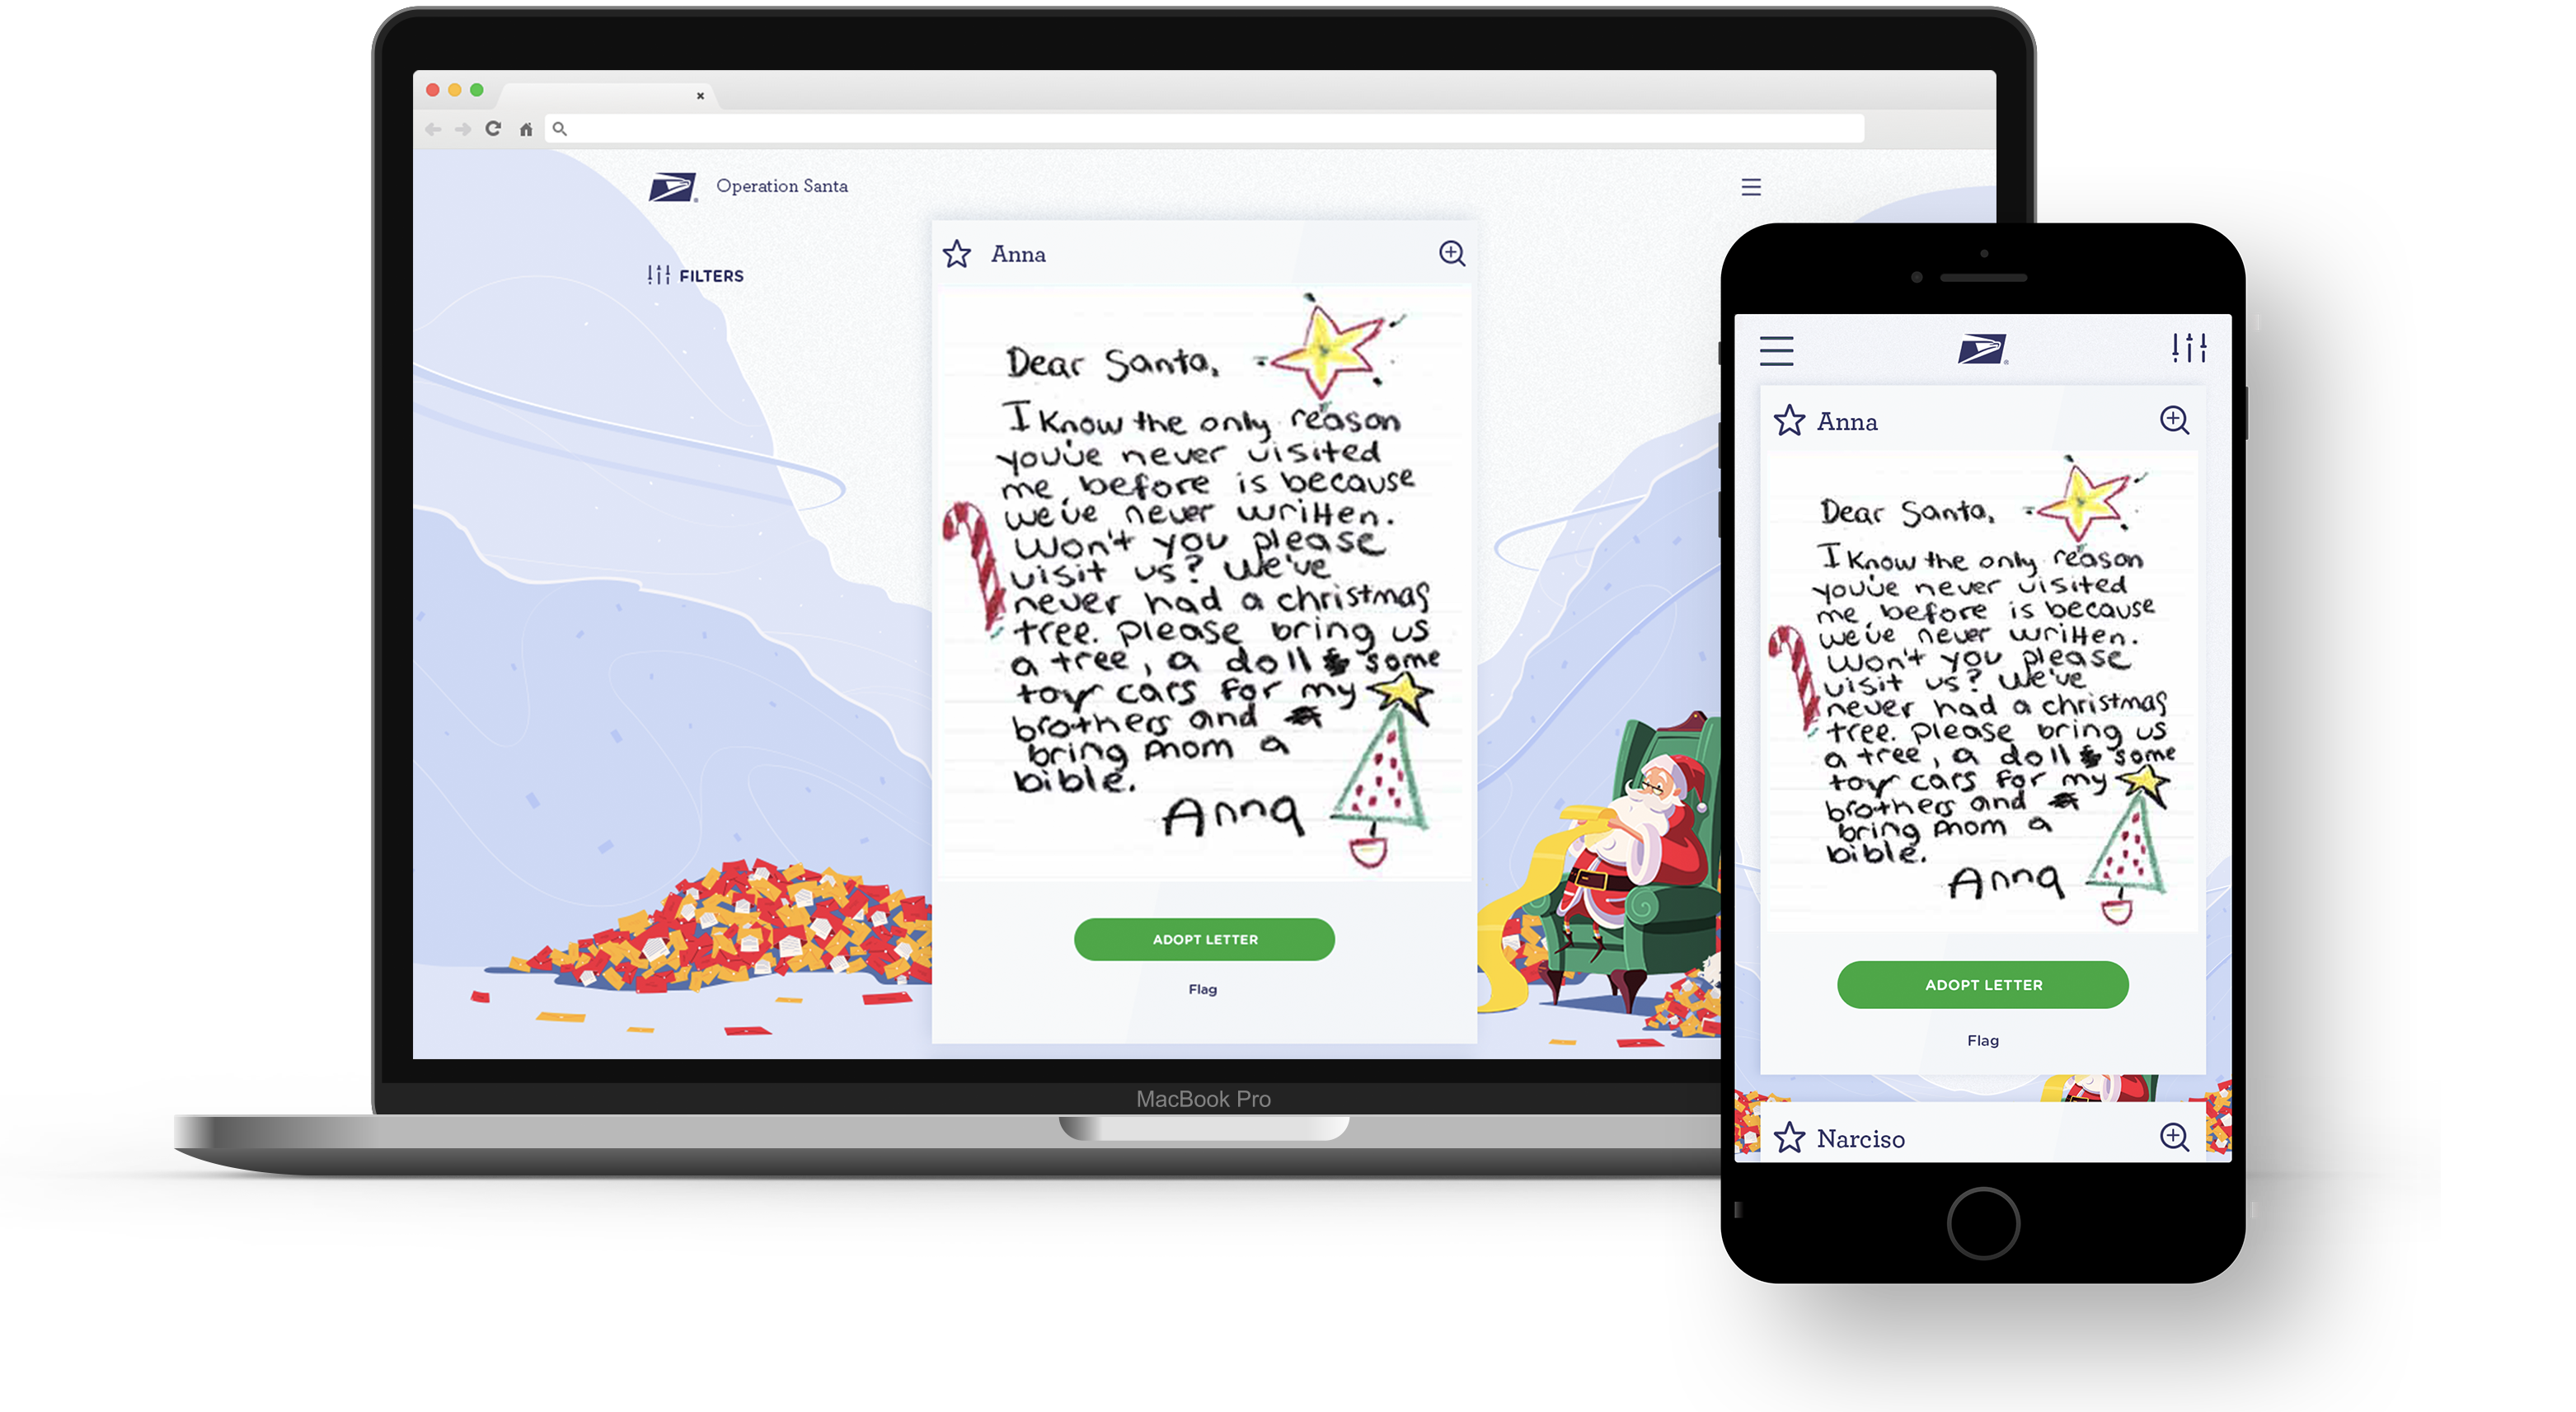 Operation Santa
FILTERS
Anna
Dear Santa,
I Know the only reason
you've never visited
me before is because
we've never written.
Won't you please
visit us? We've
never had a christmas
tree. Please bring us
a tree, a doll & some
toy cars for my
brothers and
bring mom a
bible.
Anna
ADOPT LETTER
Flag
MacBook Pro
Anna
Dear Santa,
I Know the only reason
you've never visited
me before is because
we've never written.
Won't you please
visit us? We've
never had a christmas
tree. Please bring us
a tree, a doll & some
toy cars for my
brothers and
bring mom a
bible.
Anna
ADOPT LETTER
Flag
Narciso